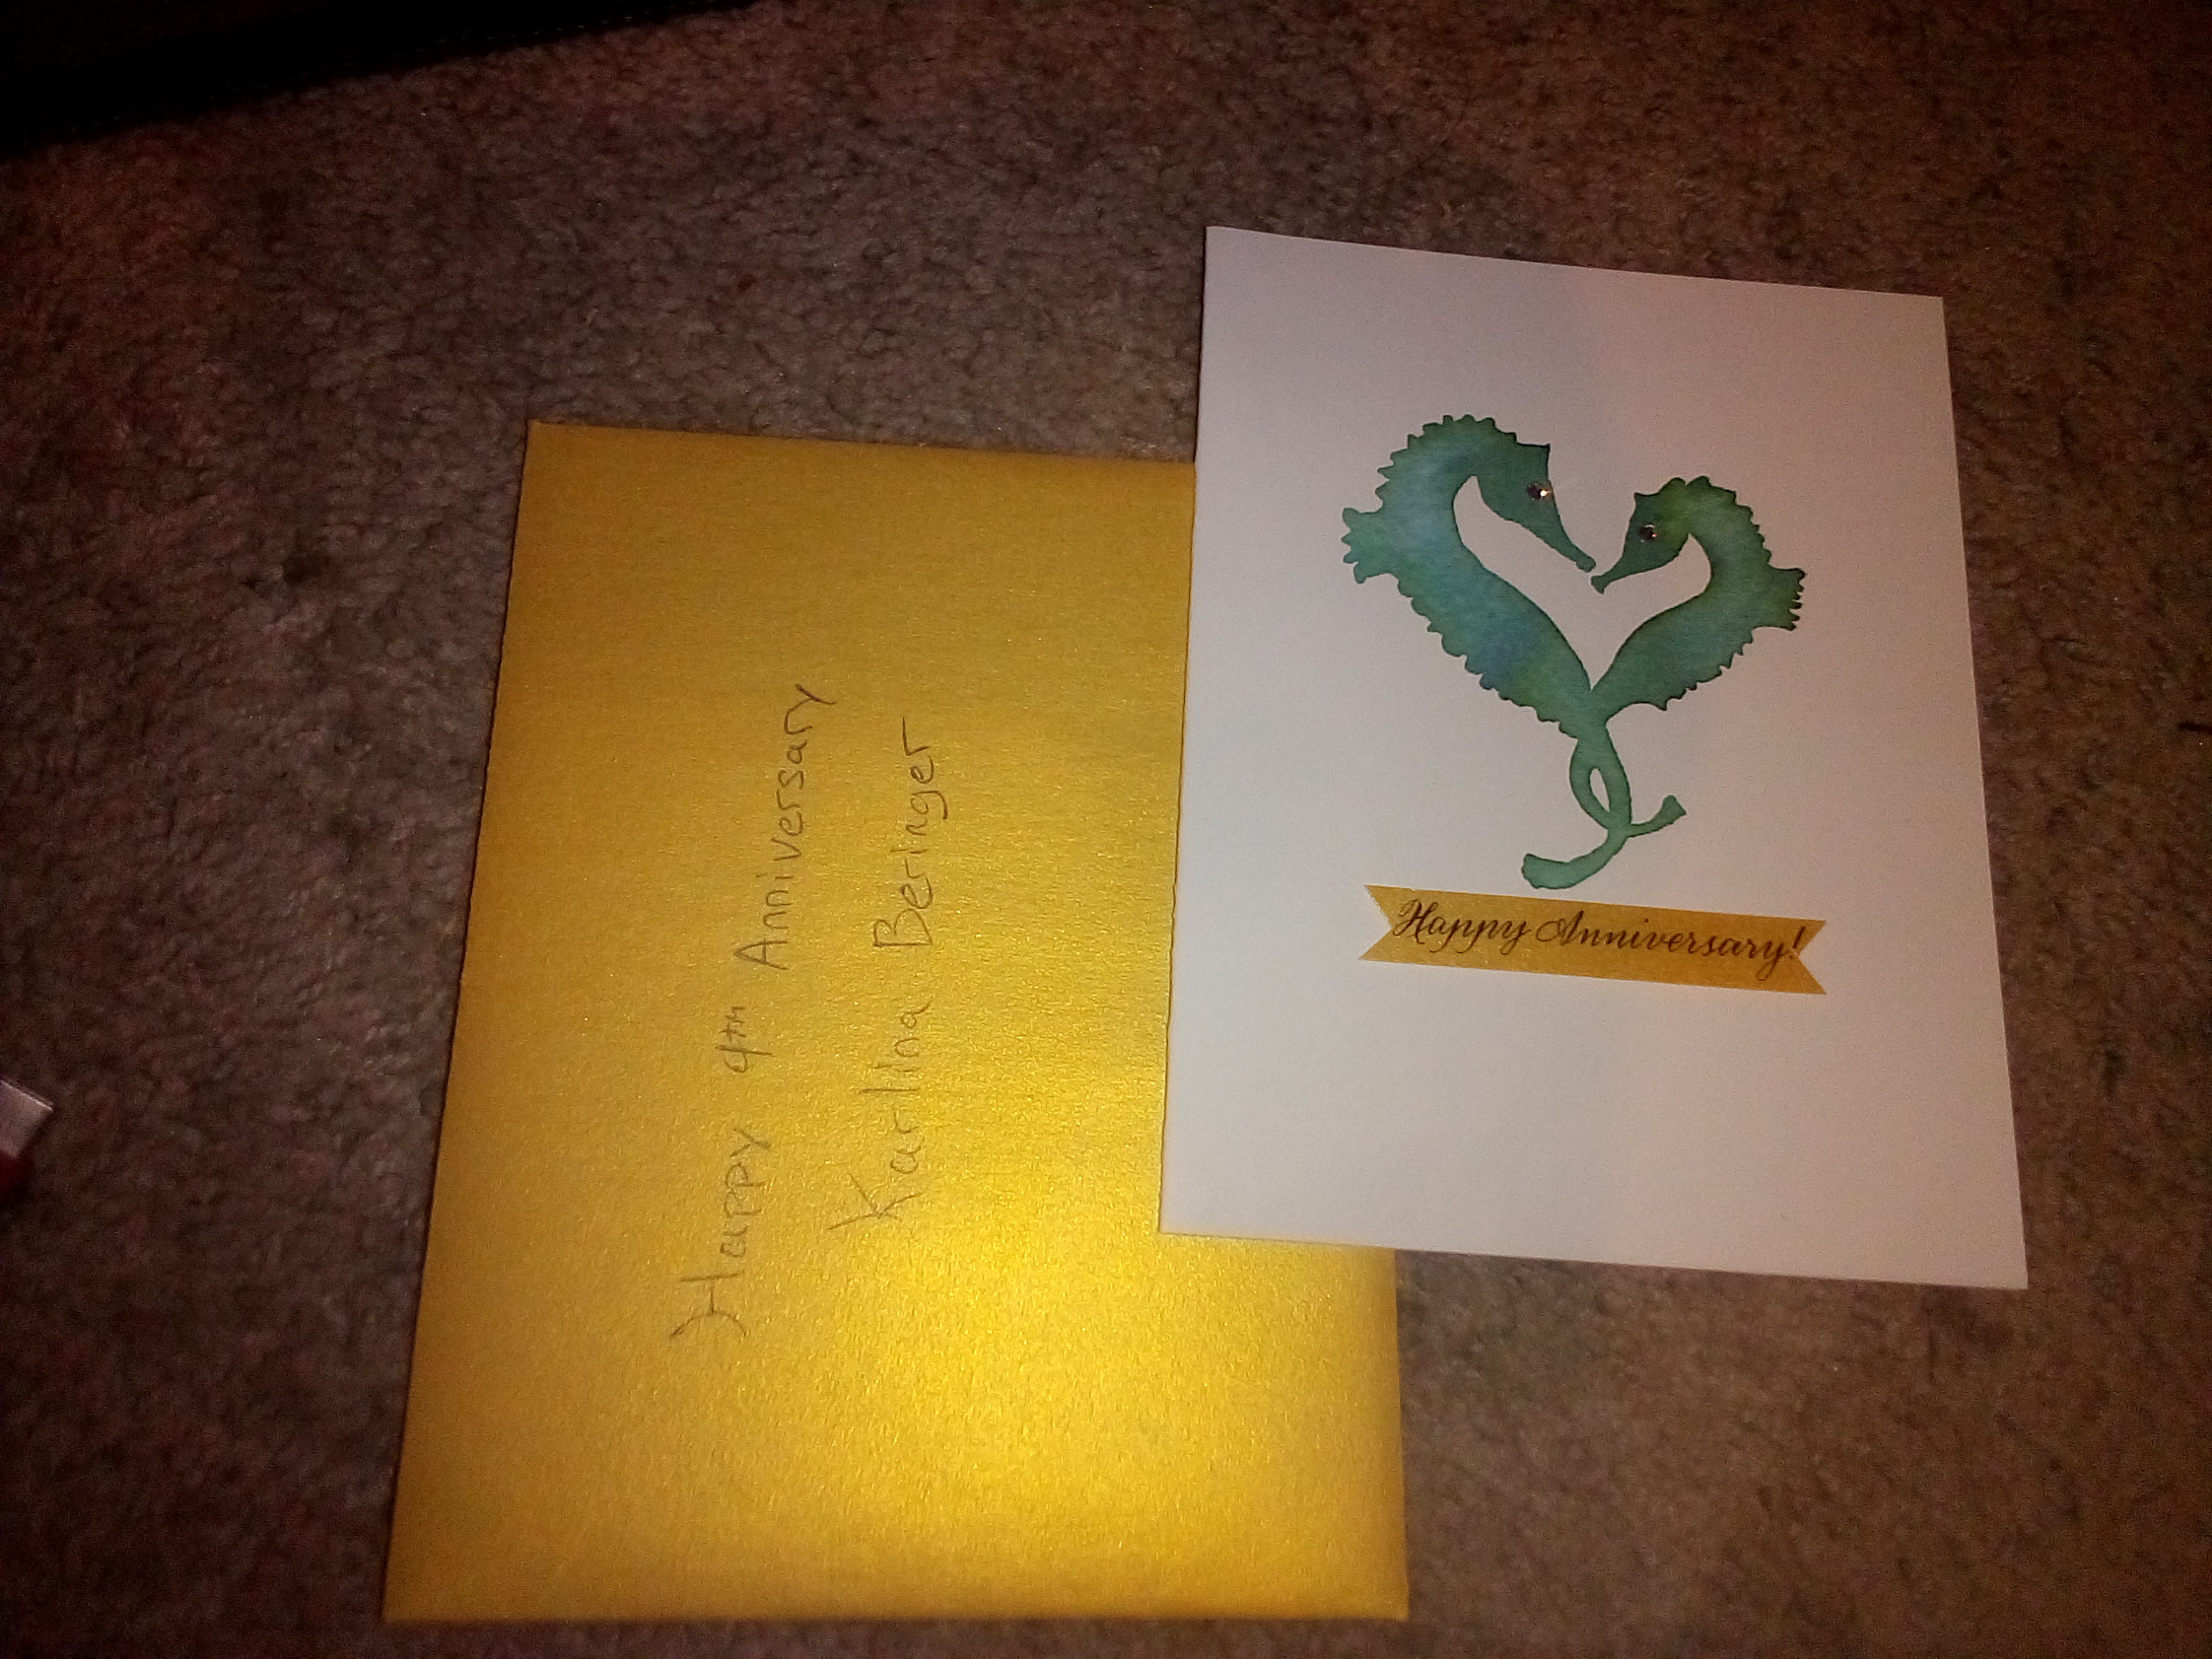 Happy 4th Anniversary
Karlina Beringer
Happy Anniversary!